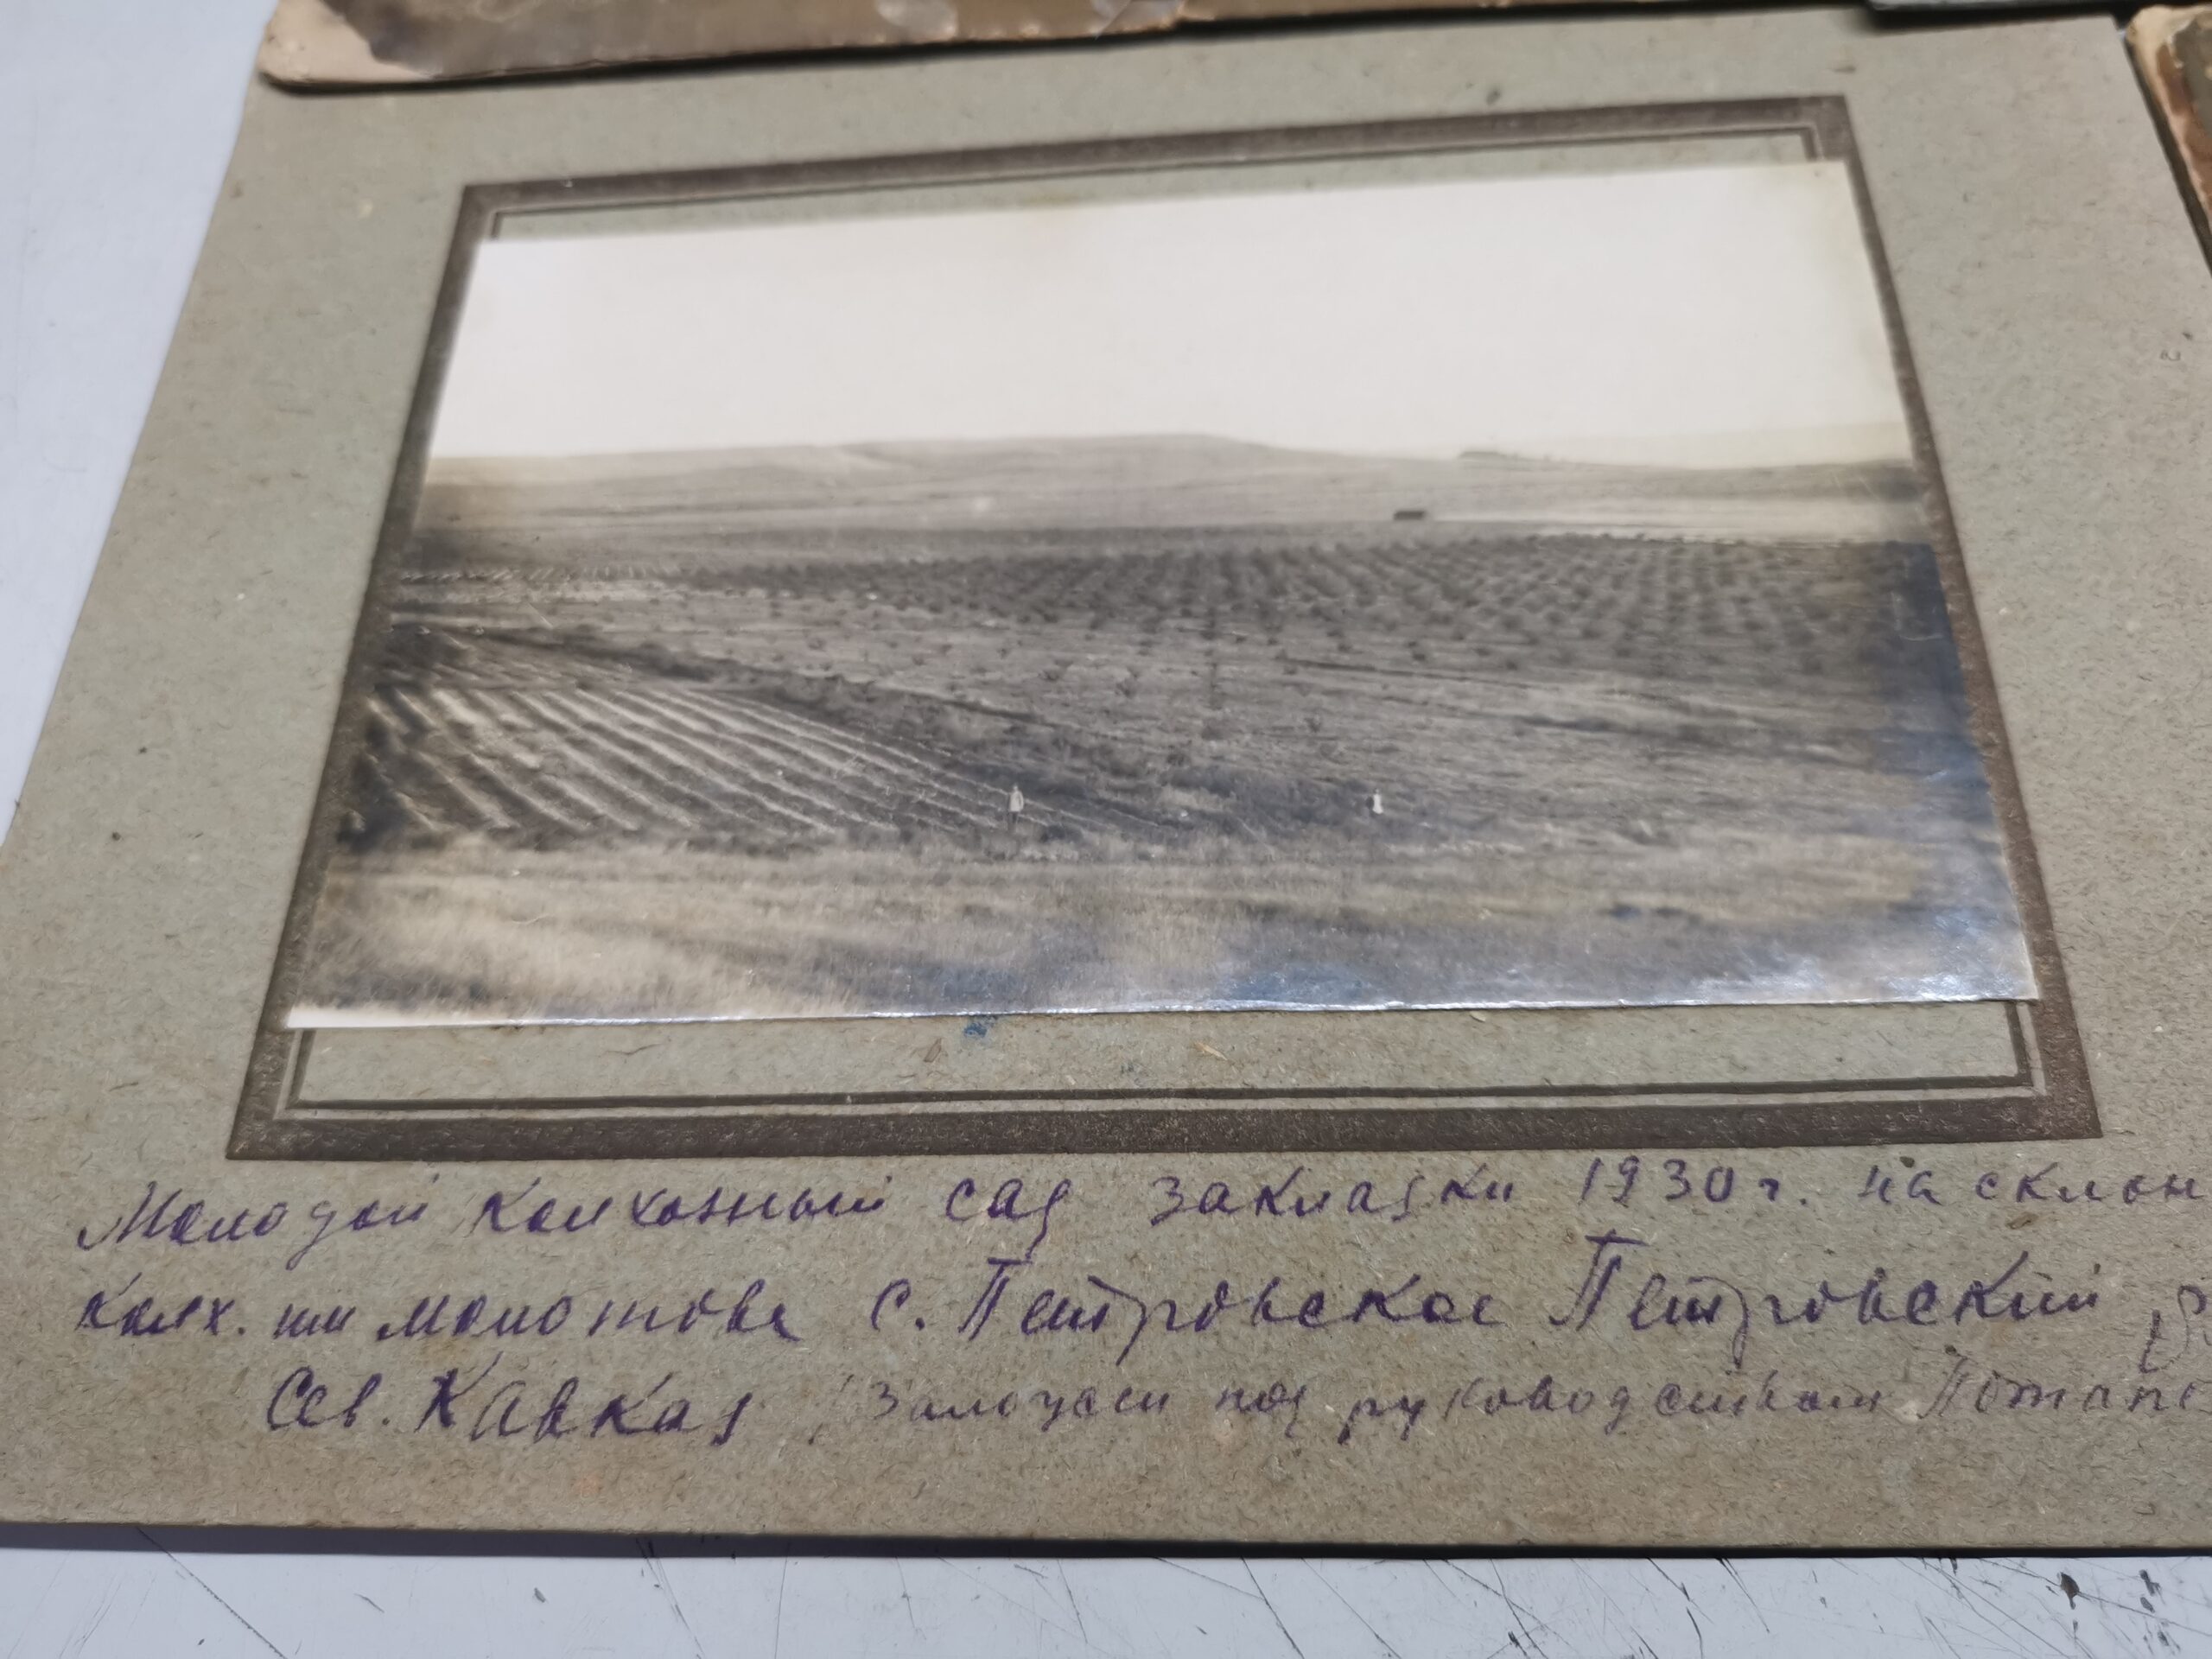 Молодой колхозный сад закладки 1930 г. на склон
колх. им Молотова с. Петровское Петровский
Сев. Кавказ Заложен под руководством Потапе